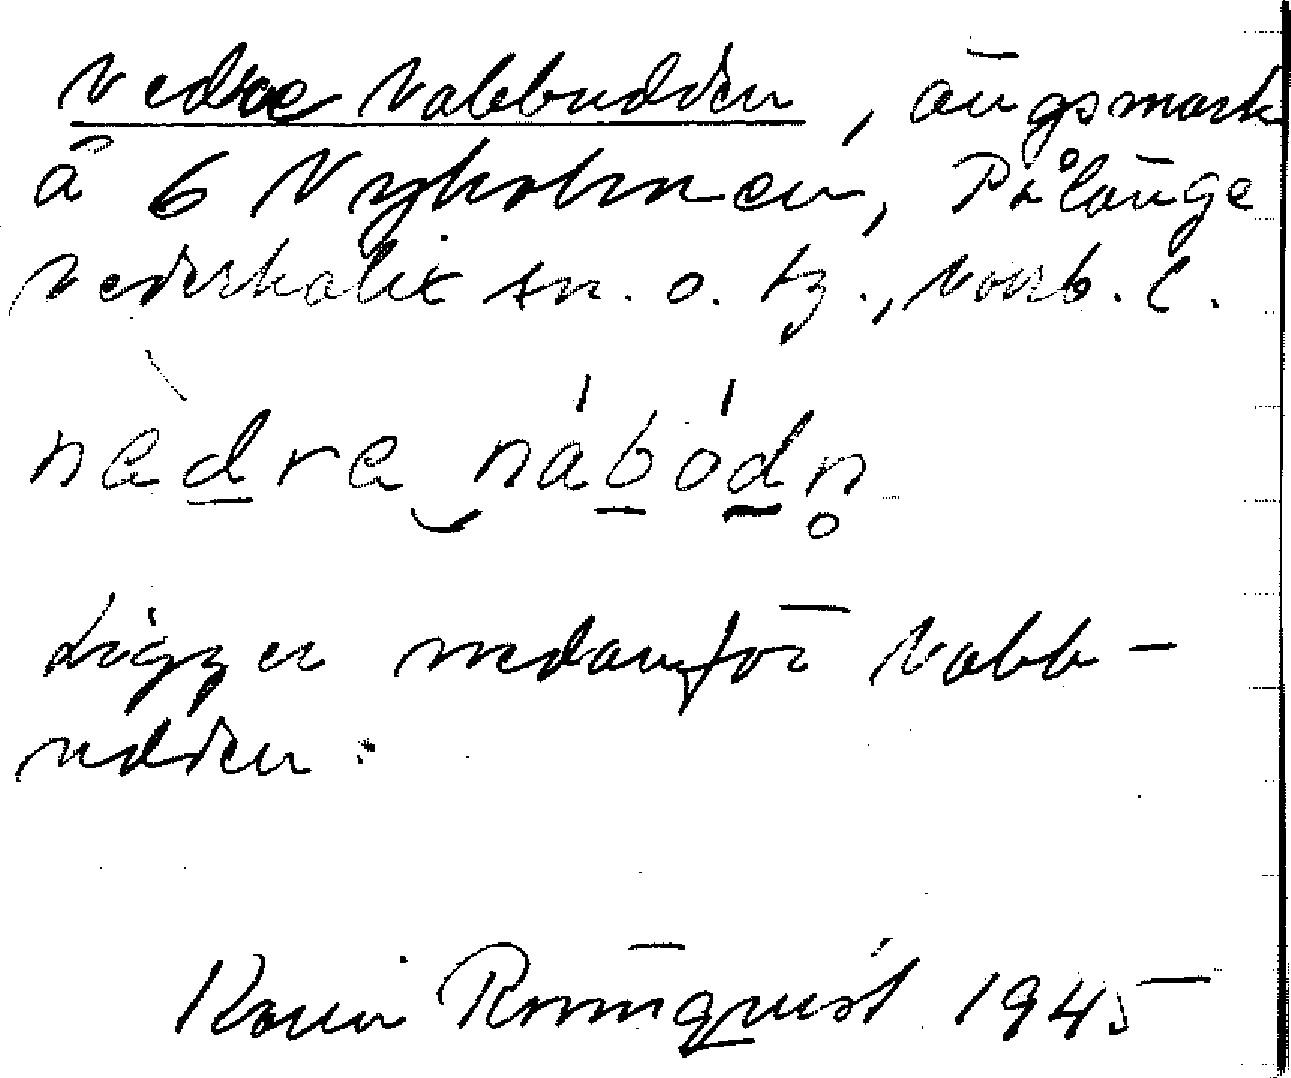 Nedre Nabbudden, ängsmark
å 6 Nyholmen, Pålänge
Nederkalix sn. o. tg., Norrb. l.
nèdre nábódn
Ligger nedanför Nabb-
udden.
Karin Rönnquist 1945